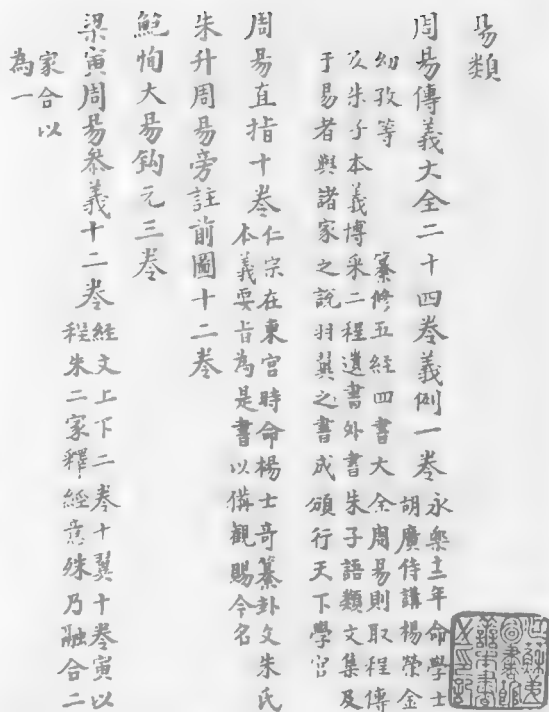 易類
周易傳義大全二十四卷義例一卷永樂十二年命學士
胡廣侍講楊榮金
幼孜等纂修五經四書大全周易則取程傳
及朱子本義博采二程遺書外書朱子語類文集及
于易者與諸家之說羽翼之書成頒行天下學官
周易直指十卷仁宗在東宮時命楊士奇纂卦文朱氏
本義要旨為是書以備觀賜今名
朱升周易旁註前圖十二卷
鮑恂大易鈎元三卷
梁寅周易叅義十二卷經文上下二卷十翼十卷寅以
程朱二家釋經意殊乃融合二
家合以
為一